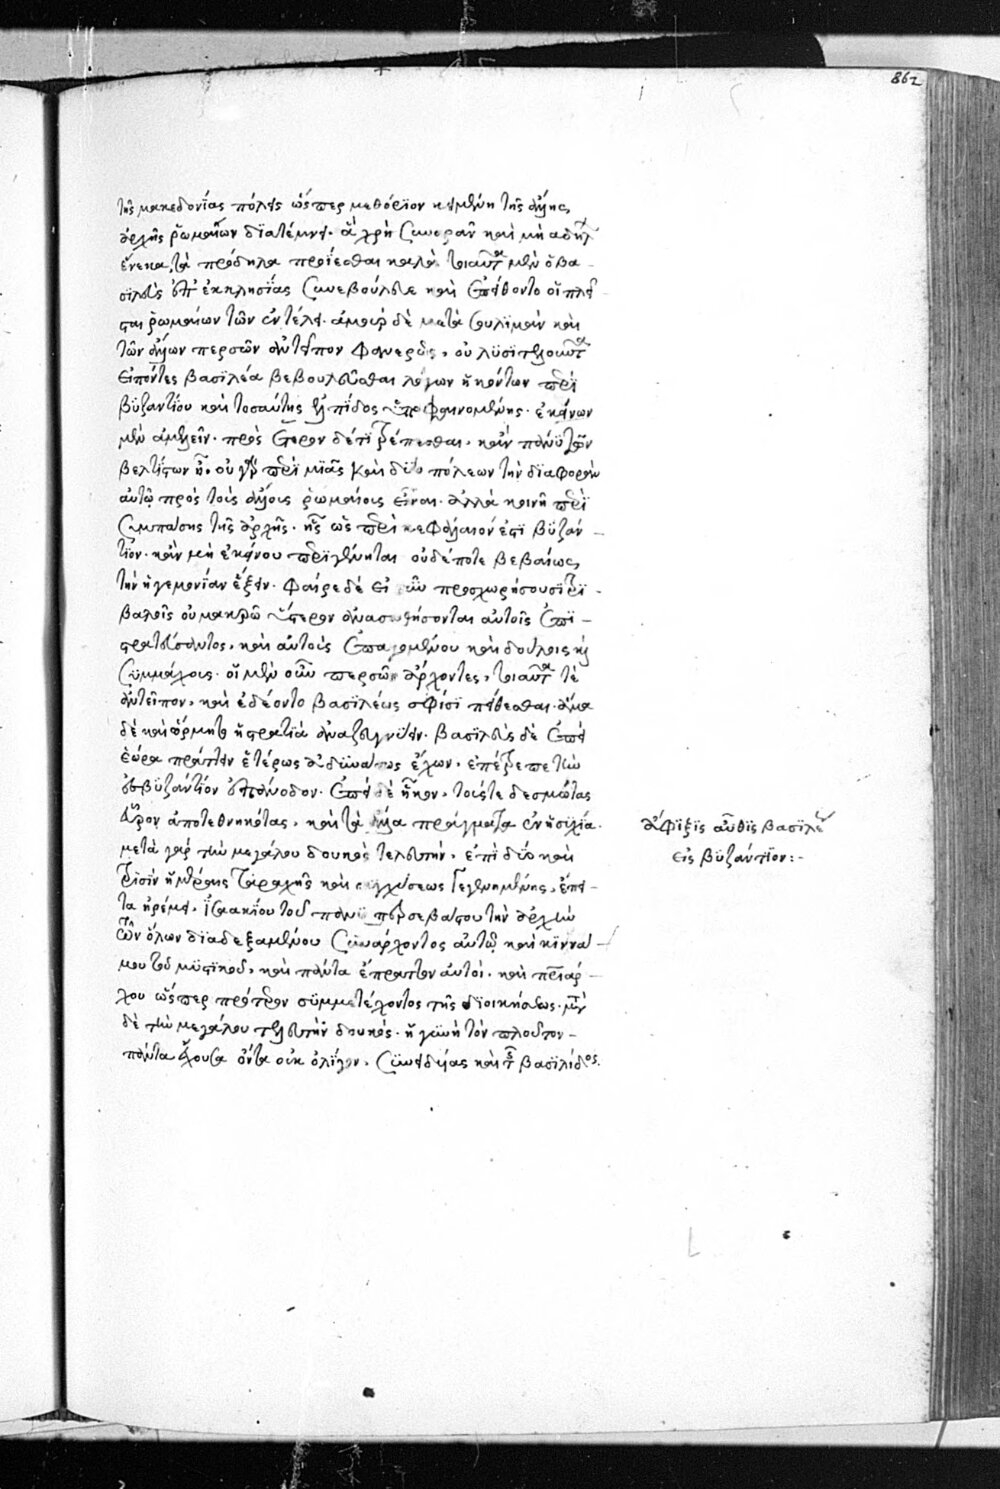 862
τῆς μακεδονίας πόλις ὥσπερ μεθόριον κειμένη τῆς ἄλλης
ἀρχῆς ῥωμαίων διατέμνει. ἃ χρὴ συνορᾶν καὶ μὴ ἀδήλων
ἕνεκα, τὰ πρόδηλα προΐεσθαι καλά. τοιαῦτα μὲν ὁ βα-
σιλεὺς ἐπ' ἐκκλησίας συνεβούλευε καὶ ἐπείθοντο οἱ πλεῖ-
στοι ῥωμαίων τῶν ἐν τέλει. ἀμοὺρ δὲ μετὰ σουλιμὰν καὶ
τῶν ἄλλων περσῶν ἀντεῖπον φανερῶς, οὐ λυσιτελοῦντα
εἰπόντες βασιλέα βεβουλεῦσθαι λόγων ἡκόντων περὶ
βυζαντίου καὶ τοσαύτης ἐλπίδος ὑποφαινομένης. ἐκείνων
μὲν ἀμελεῖν. πρὸς ἕτερον δέ τι τρέπεσθαι. κἂν πάνυ τῶν
βελτίστων ᾖ. οὐ γὰρ περὶ μιᾶς καὶ δύο πόλεων τὴν διαφορὰν
αὐτῷ πρὸς τοὺς ἄλλους ῥωμαίους εἶναι. ἀλλὰ κοινῇ περὶ
συμπάσης τῆς ἀρχῆς. ἧς ὥσπερ κεφάλαιόν ἐστι βυζάν-
τιον. κἂν μὴ ἐκείνου περιγένηται οὐδέποτε βεβαίως
τὴν ἡγεμονίαν ἕξειν. φαίρε δέ εἰ νῦν προσχωρήσουσι τρι-
βαλοῖς οὐ μακρῷ ὕστερον ἀνασωθήσονται αὐτοῖς ἐπι-
στρατεύσαντος, καὶ αὐτοὺς ἐπαγομένου καὶ δούλοις καὶ
συμμάχοις. οἱ μὲν οὖν περσῶν ἄρχοντες, τοιαῦτά τε
ἀντεῖπον, καὶ ἐδέοντο βασιλέως σφίσι πείθεσθαι. ἅμα
δὲ καὶ ὥρμητο ἡ στρατιὰ ἀναζευγνύειν. βασιλεὺς δὲ ἐπεὶ
ἑώρα πράττειν ἑτέρως ἀδυνάτως ἔχων, ἐπέτρεπε τὴν
ἐς βυζάντιον ἐπάνοδον. ἐπεὶ δὲ ἧκον, τούς τε δεσμώτας
εὗρον ἀποτεθνηκότας, καὶ τὰ ἄλλα πράγματα ἐν ἡσυχίᾳ.
μετὰ γὰρ τὴν μεγάλου δουκὸς τελευτὴν, ἐπὶ δύο καὶ
τρισὶν ἡμέραις ταραχῆς καὶ συγχύσεως γεγενημένης, ἔπει-
τα ἠρέμει, ἰσαακίου τοῦ πανυπερσεβάστου τὴν ἀρχὴν
τῶν ὅλων διαδεξαμένου συνάρχοντος αὐτῷ καὶ κιννά-
μου τοῦ μυστικοῦ, καὶ πάντα ἔπραττον αὐτοὶ. καὶ πατριάρ-
χου ὥσπερ πρότερον συμμετέχοντος τῆς διοικήσεως. μετὰ
δὲ τὴν μεγάλου τελευτὴν δουκὸς. ἡ γυνὴ τὸν πλοῦτον
πάντα ἔχουσα ὄντα οὐκ ὀλίγον, συνειδυίας καὶ τῆς βασιλίδος.
ἄφιξις αὖθις βασιλέως
εἰς βυζάντιον:-